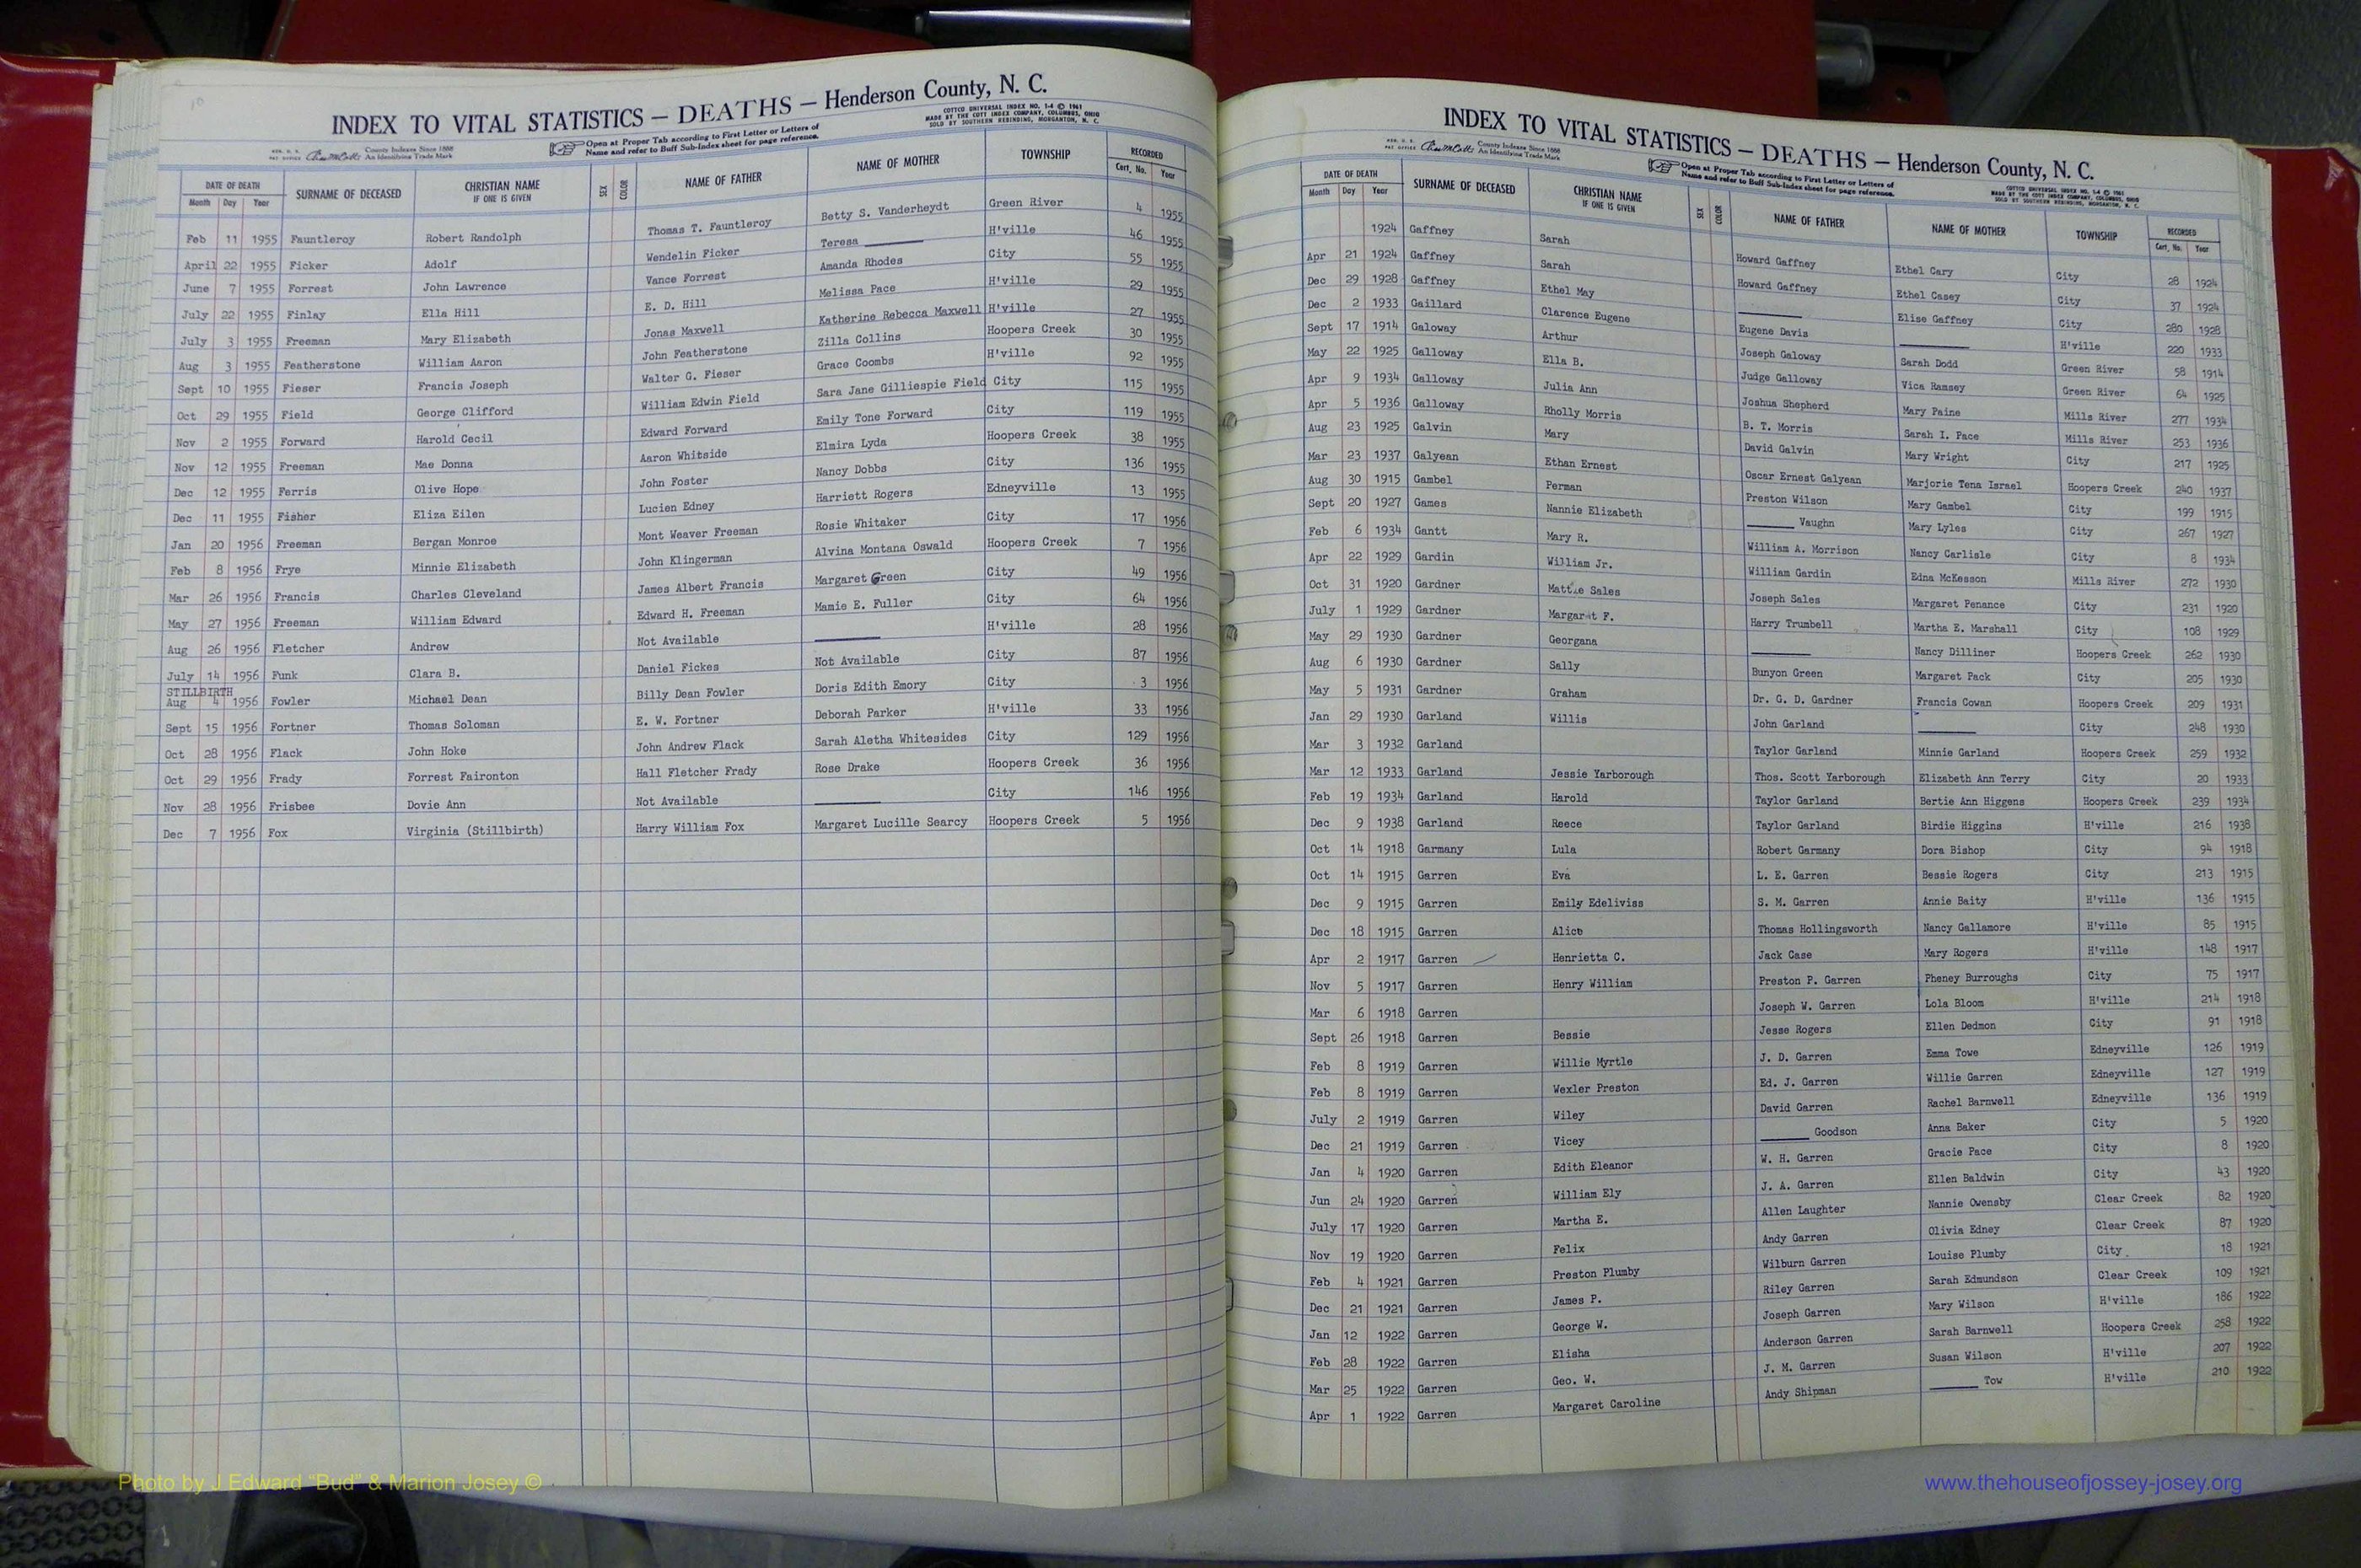 INDEX TO VITAL STATISTICS — DEATHS — Henderson County, N. C.
COTTCO UNIVERSAL INDEX NO. 1-4 © 1961
MADE BY THE COTT INDEX COMPANY, COLUMBUS, OHIO
SOLD BY SOUTHERN REBINDING, MORGANTON, N. C.
County Indexes Since 1888
An Identifying Trade Mark
Open at Proper Tab according to First Letter or Letters of
Name and refer to Buff Sub-Index sheet for page reference.
DATE OF DEATH SURNAME OF DECEASED CHRISTIAN NAME IF ONE IS GIVEN SEX COLOR NAME OF FATHER NAME OF MOTHER TOWNSHIP RECORDED
Month Day Year Cert. No. Year
Feb 11 1955 Fauntleroy Robert Randolph Thomas T. Fauntleroy Betty S. Vanderheydt Green River 4 1955
April 22 1955 Ficker Adolf Wendelin Ficker Teresa ———— H'ville 46 1955
June 7 1955 Forrest John Lawrence Vance Forrest Amanda Rhodes City 55 1955
July 22 1955 Finlay Ella Hill E. D. Hill Melissa Pace H'ville 29 1955
July 3 1955 Freeman Mary Elizabeth Jonas Maxwell Katherine Rebecca Maxwell H'ville 27 1955
Aug 3 1955 Featherstone William Aaron John Featherstone Zilla Collins Hoopers Creek 30 1955
Sept 10 1955 Fieser Francis Joseph Walter G. Fieser Grace Coombs H'ville 92 1955
Oct 29 1955 Field George Clifford William Edwin Field Sara Jane Gilliespie Field City 115 1955
Nov 2 1955 Forward Harold Cecil Edward Forward Emily Tone Forward City 119 1955
Nov 12 1955 Freeman Mae Donna Aaron Whitside Elmira Lyda Hoopers Creek 38 1955
Dec 12 1955 Ferris Olive Hope John Foster Nancy Dobbs City 136 1955
Dec 11 1955 Fisher Eliza Eilen Lucien Edney Harriett Rogers Edneyville 13 1955
Jan 20 1956 Freeman Bergan Monroe Mont Weaver Freeman Rosie Whitaker City 17 1956
Feb 8 1956 Frye Minnie Elizabeth John Klingerman Alvina Montana Oswald Hoopers Creek 7 1956
Mar 26 1956 Francis Charles Cleveland James Albert Francis Margaret Green City 49 1956
May 27 1956 Freeman William Edward Edward H. Freeman Mamie E. Fuller City 64 1956
Aug 26 1956 Fletcher Andrew Not Available ———— H'ville 28 1956
July 14 1956 Funk Clara B. Daniel Fickes Not Available City 87 1956
STILLBIRTH
Aug 4 1956 Fowler Michael Dean Billy Dean Fowler Doris Edith Emory City 3 1956
Sept 15 1956 Fortner Thomas Soloman E. W. Fortner Deborah Parker H'ville 33 1956
Oct 28 1956 Flack John Hoke John Andrew Flack Sarah Aletha Whitesides City 129 1956
Oct 29 1956 Frady Forrest Faironton Hall Fletcher Frady Rose Drake Hoopers Creek 36 1956
Nov 28 1956 Frisbee Dovie Ann Not Available ———— City 146 1956
Dec 7 1956 Fox Virginia (Stillbirth) Harry William Fox Margaret Lucille Searcy Hoopers Creek 5 1956
INDEX TO VITAL STATISTICS — DEATHS — Henderson County, N. C.
County Indexes Since 1888
An Identifying Trade Mark
Open at Proper Tab according to First Letter or Letters of
Name and refer to Buff Sub-Index sheet for page reference.
COTTCO UNIVERSAL INDEX NO. 1-4 © 1961
MADE BY THE COTT INDEX COMPANY, COLUMBUS, OHIO
SOLD BY SOUTHERN REBINDING, MORGANTON, N. C.
DATE OF DEATH SURNAME OF DECEASED CHRISTIAN NAME IF ONE IS GIVEN SEX COLOR NAME OF FATHER NAME OF MOTHER TOWNSHIP RECORDED
Month Day Year Cert. No. Year
1924 Gaffney Sarah Howard Gaffney Ethel Cary City 28 1924
Apr 21 1924 Gaffney Sarah Howard Gaffney Ethel Casey City 37 1924
Dec 29 1928 Gaffney Ethel May ———— Elise Gaffney City 280 1928
Dec 2 1933 Gaillard Clarence Eugene Eugene Davis ———— H'ville 220 1933
Sept 17 1914 Galoway Arthur Joseph Galoway Sarah Dodd Green River 58 1914
May 22 1925 Galloway Ella B. Judge Galloway Vica Ramsey Green River 64 1925
Apr 9 1934 Galloway Julia Ann Joshua Shepherd Mary Paine Mills River 277 1934
Apr 5 1936 Galloway Rholly Morris B. T. Morris Sarah I. Pace Mills River 253 1936
Aug 23 1925 Galvin Mary David Galvin Mary Wright City 217 1925
Mar 23 1937 Galyean Ethan Ernest Oscar Ernest Galyean Marjorie Tena Israel Hoopers Creek 240 1937
Aug 30 1915 Gambel Perman Preston Wilson Mary Gambel City 199 1915
Sept 20 1927 Games Nannie Elizabeth ———— Vaughn Mary Lyles City 267 1927
Feb 6 1934 Gantt Mary R. William A. Morrison Nancy Carlisle City 8 1934
Apr 22 1929 Gardin William Jr. William Gardin Edna McKesson Mills River 272 1930
Oct 31 1920 Gardner Mattie Sales Joseph Sales Margaret Penance City 231 1920
July 1 1929 Gardner Margaret F. Harry Trumbell Martha E. Marshall City 108 1929
May 29 1930 Gardner Georgana ———— Nancy Dilliner Hoopers Creek 262 1930
Aug 6 1930 Gardner Sally Bunyon Green Margaret Pack City 205 1930
May 5 1931 Gardner Graham Dr. G. D. Gardner Francis Cowan Hoopers Creek 209 1931
Jan 29 1930 Garland Willis John Garland ———— City 248 1930
Mar 3 1932 Garland Taylor Garland Minnie Garland Hoopers Creek 259 1932
Mar 12 1933 Garland Jessie Yarborough Thos. Scott Yarborough Elizabeth Ann Terry City 20 1933
Feb 19 1934 Garland Harold Taylor Garland Bertie Ann Higgens Hoopers Creek 239 1934
Dec 9 1938 Garland Reece Taylor Garland Birdie Higgins H'ville 216 1938
Oct 14 1918 Garmany Lula Robert Garmany Dora Bishop City 94 1918
Oct 14 1915 Garren Eva L. E. Garren Bessie Rogers City 213 1915
Dec 9 1915 Garren Emily Edeliviss S. M. Garren Annie Baity H'ville 136 1915
Dec 18 1915 Garren Alice Thomas Hollingsworth Nancy Gallamore H'ville 85 1915
Apr 2 1917 Garren Henrietta C. Jack Case Mary Rogers H'ville 148 1917
Nov 5 1917 Garren Henry William Preston P. Garren Pheney Burroughs City 75 1917
Mar 6 1918 Garren Joseph W. Garren Lola Bloom H'ville 214 1918
Sept 26 1918 Garren Bessie Jesse Rogers Ellen Dedmon City 91 1918
Feb 8 1919 Garren Willie Myrtle J. D. Garren Emma Towe Edneyville 126 1919
Feb 8 1919 Garren Wexler Preston Ed. J. Garren Willie Garren Edneyville 127 1919
July 2 1919 Garren Wiley David Garren Rachel Barnwell Edneyville 136 1919
Dec 21 1919 Garren Vicey ———— Goodson Anna Baker City 5 1920
Jan 4 1920 Garren Edith Eleanor W. H. Garren Gracie Pace City 8 1920
Jun 24 1920 Garren William Ely J. A. Garren Ellen Baldwin City 43 1920
July 17 1920 Garren Martha E. Allen Laughter Nannie Owensby Clear Creek 82 1920
Nov 19 1920 Garren Felix Andy Garren Olivia Edney Clear Creek 87 1920
Feb 4 1921 Garren Preston Plumby Wilburn Garren Louise Plumby City 18 1921
Dec 21 1921 Garren James P. Riley Garren Sarah Edmundson Clear Creek 109 1921
Jan 12 1922 Garren George W. Joseph Garren Mary Wilson H'ville 186 1922
Feb 28 1922 Garren Elisha Anderson Garren Sarah Barnwell Hoopers Creek 258 1922
Mar 25 1922 Garren Geo. W. J. M. Garren Susan Wilson H'ville 207 1922
Apr 1 1922 Garren Margaret Caroline Andy Shipman ———— Tow H'ville 210 1922
Photo by J Edward “Bud” & Marion Josey ©
www.thehouseofjossey-josey.org